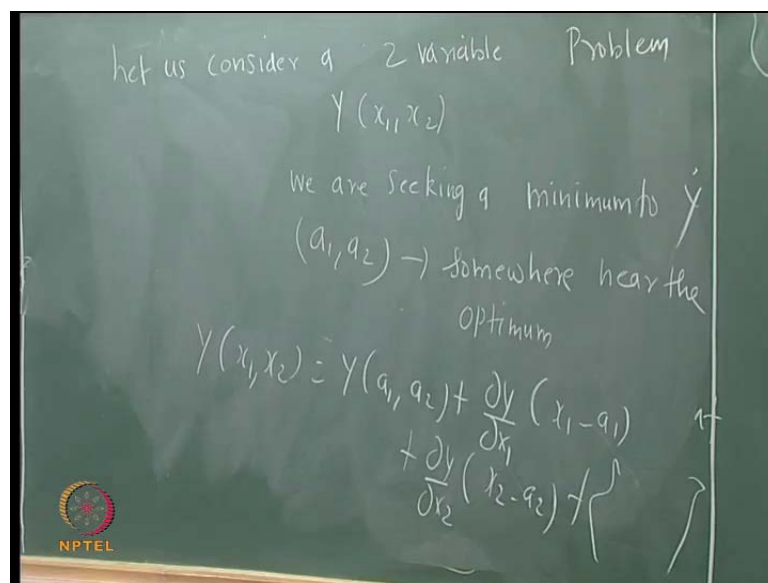 Let us consider a 2 variable Problem
Y(x₁, x₂)
We are seeking a minimum to Y
(a₁, a₂) → somewhere near the
optimum
Y(x₁, x₂) = Y(a₁, a₂) + ∂y/∂x₁ (x₁ - a₁)
+ ∂y/∂x₂ (x₂ - a₂) + { }
NPTEL